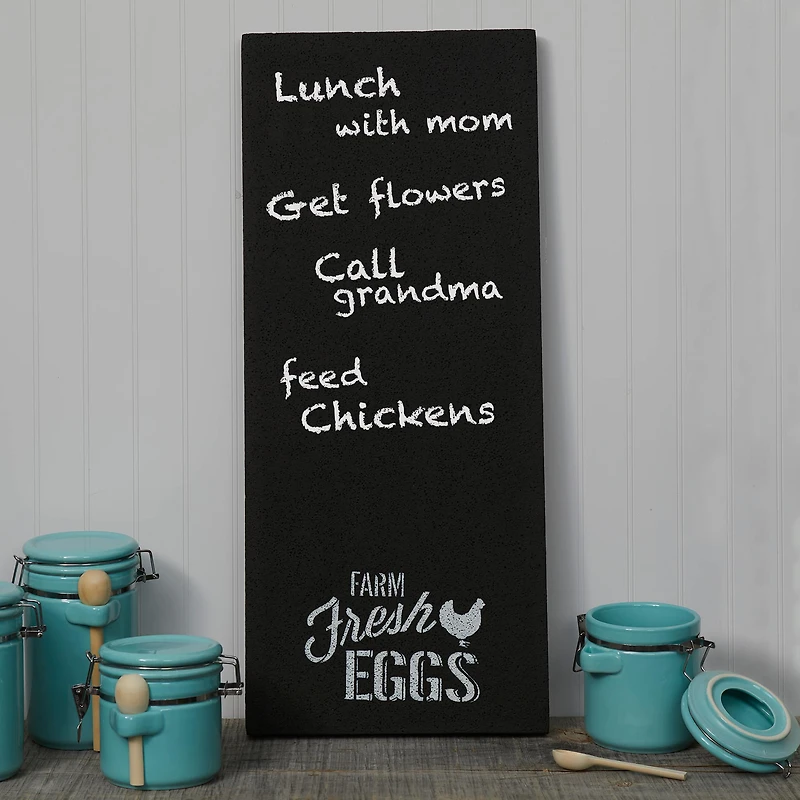 Lunch
with mom
Get flowers
Call
grandma
feed
Chickens
FARM
Fresh
EGGS